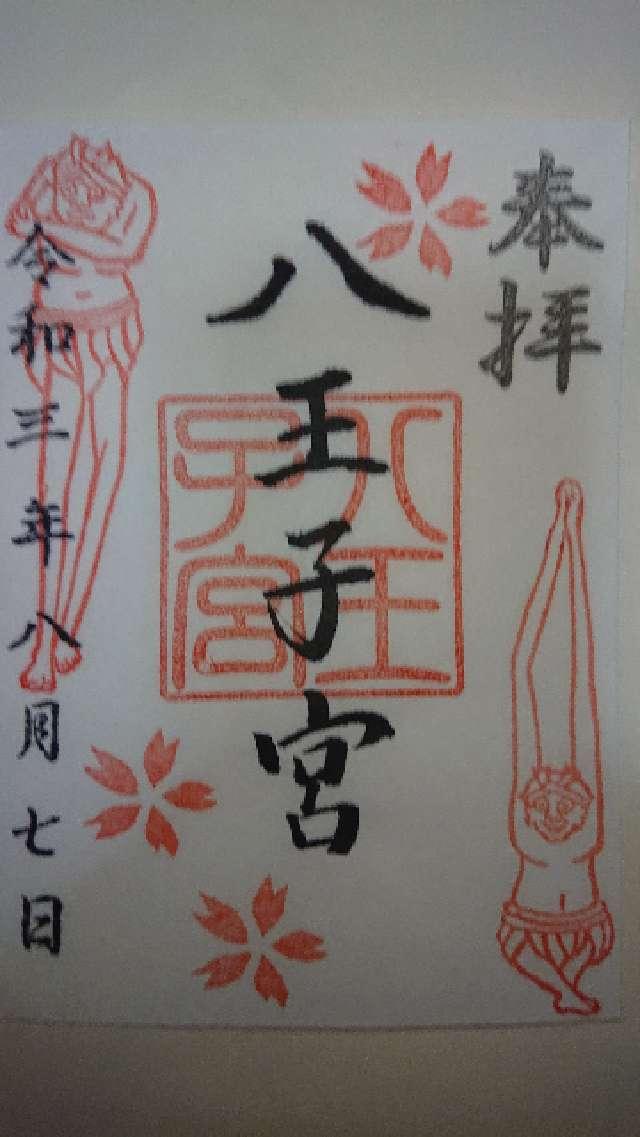 奉拝
八王子宮
八王子宮
令和三年八月七日